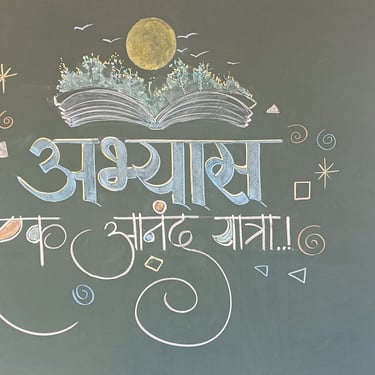 अभ्यास
एक आनंद यात्रा..!